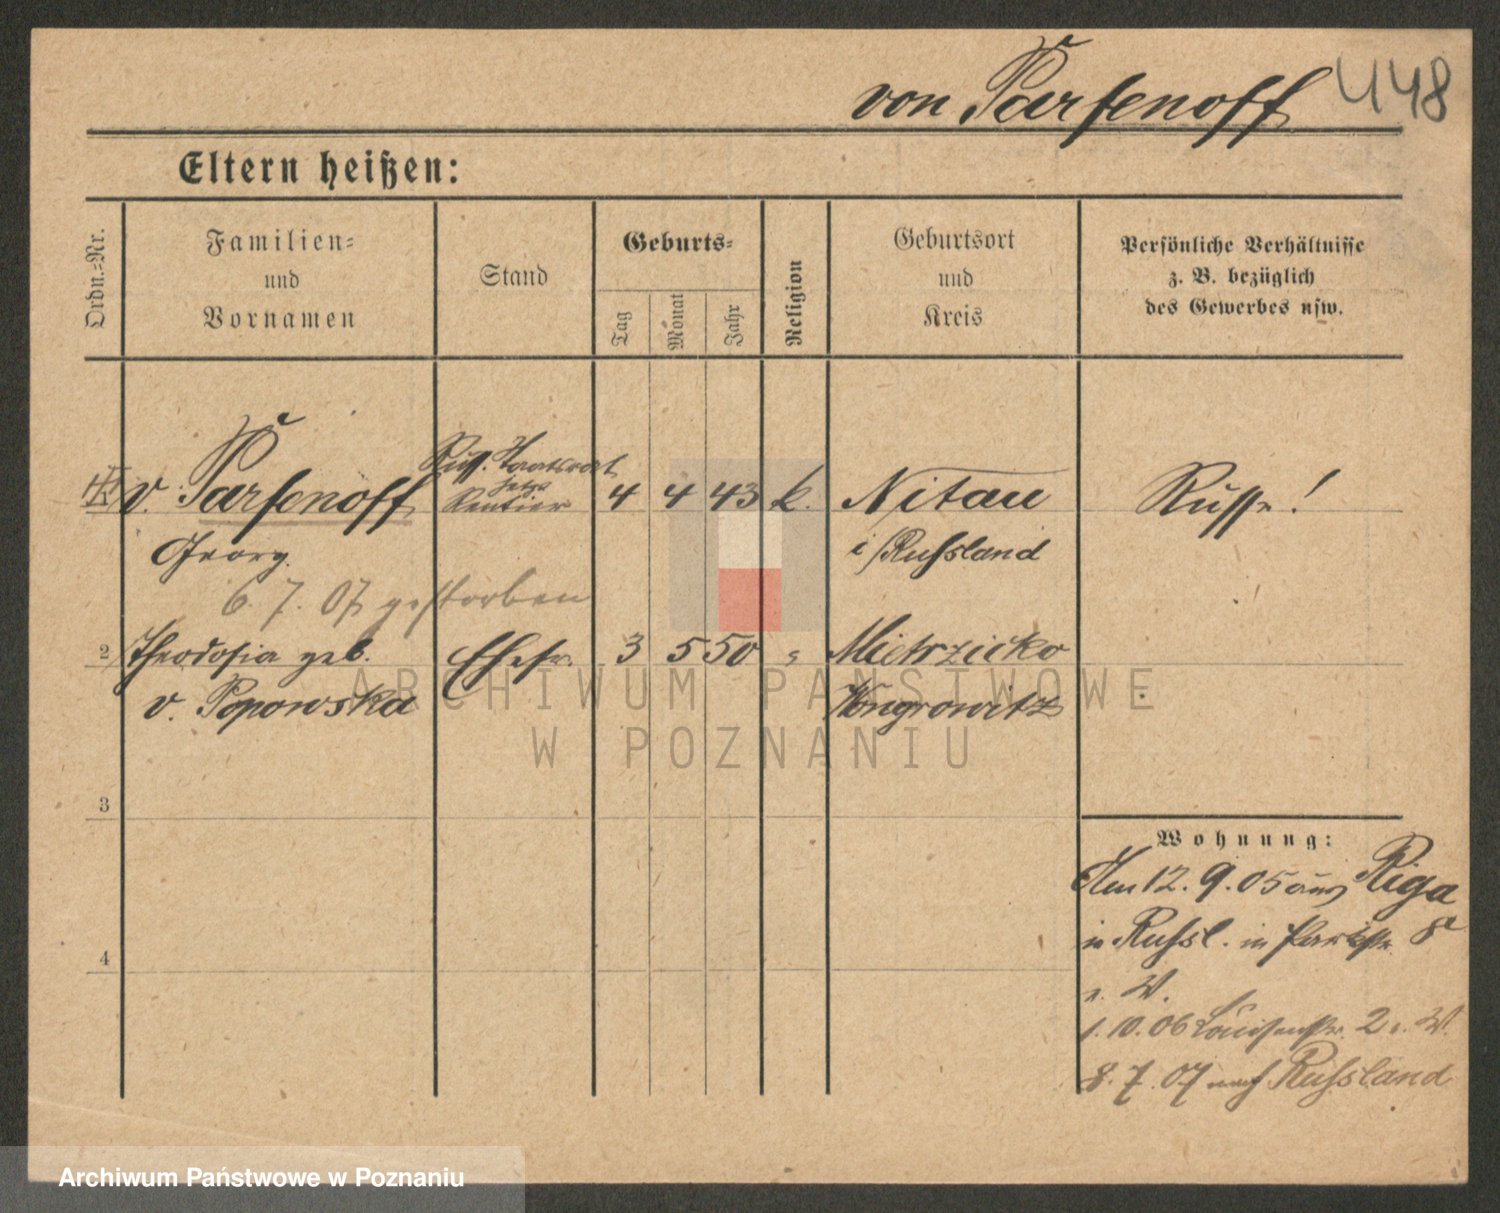 von Parfenoff 448
Eltern heißen:
Ordn.=Nr.
Familien=
und
Vornamen
Stand
Geburts=
Tag
Monat
Jahr
Religion
Geburtsort
und
Kreis
Persönliche Verhältnisse
z. B. bezüglich
des Gewerbes usw.
v. Parfenoff Russ. Staatsrat jetzt Rentier 4 4 43 k. Nitau Russe!
Georg. i/Russland
6. 7. 07 gestorben
2 Theodosia geb. Ehefr. 3 5 50 " Mietrzicko
v. Popowska Wongrowitz
3
4
Wohnung:
Am 12. 9. 05 aus Riga
in Russl. in Parkstr. 8a
1. 10. 06 Louisenstr. 2 u. W.
8. 7. 07 nach Russland
ARCHIWUM PAŃSTWOWE
W POZNANIU
Archiwum Państwowe w Poznaniu